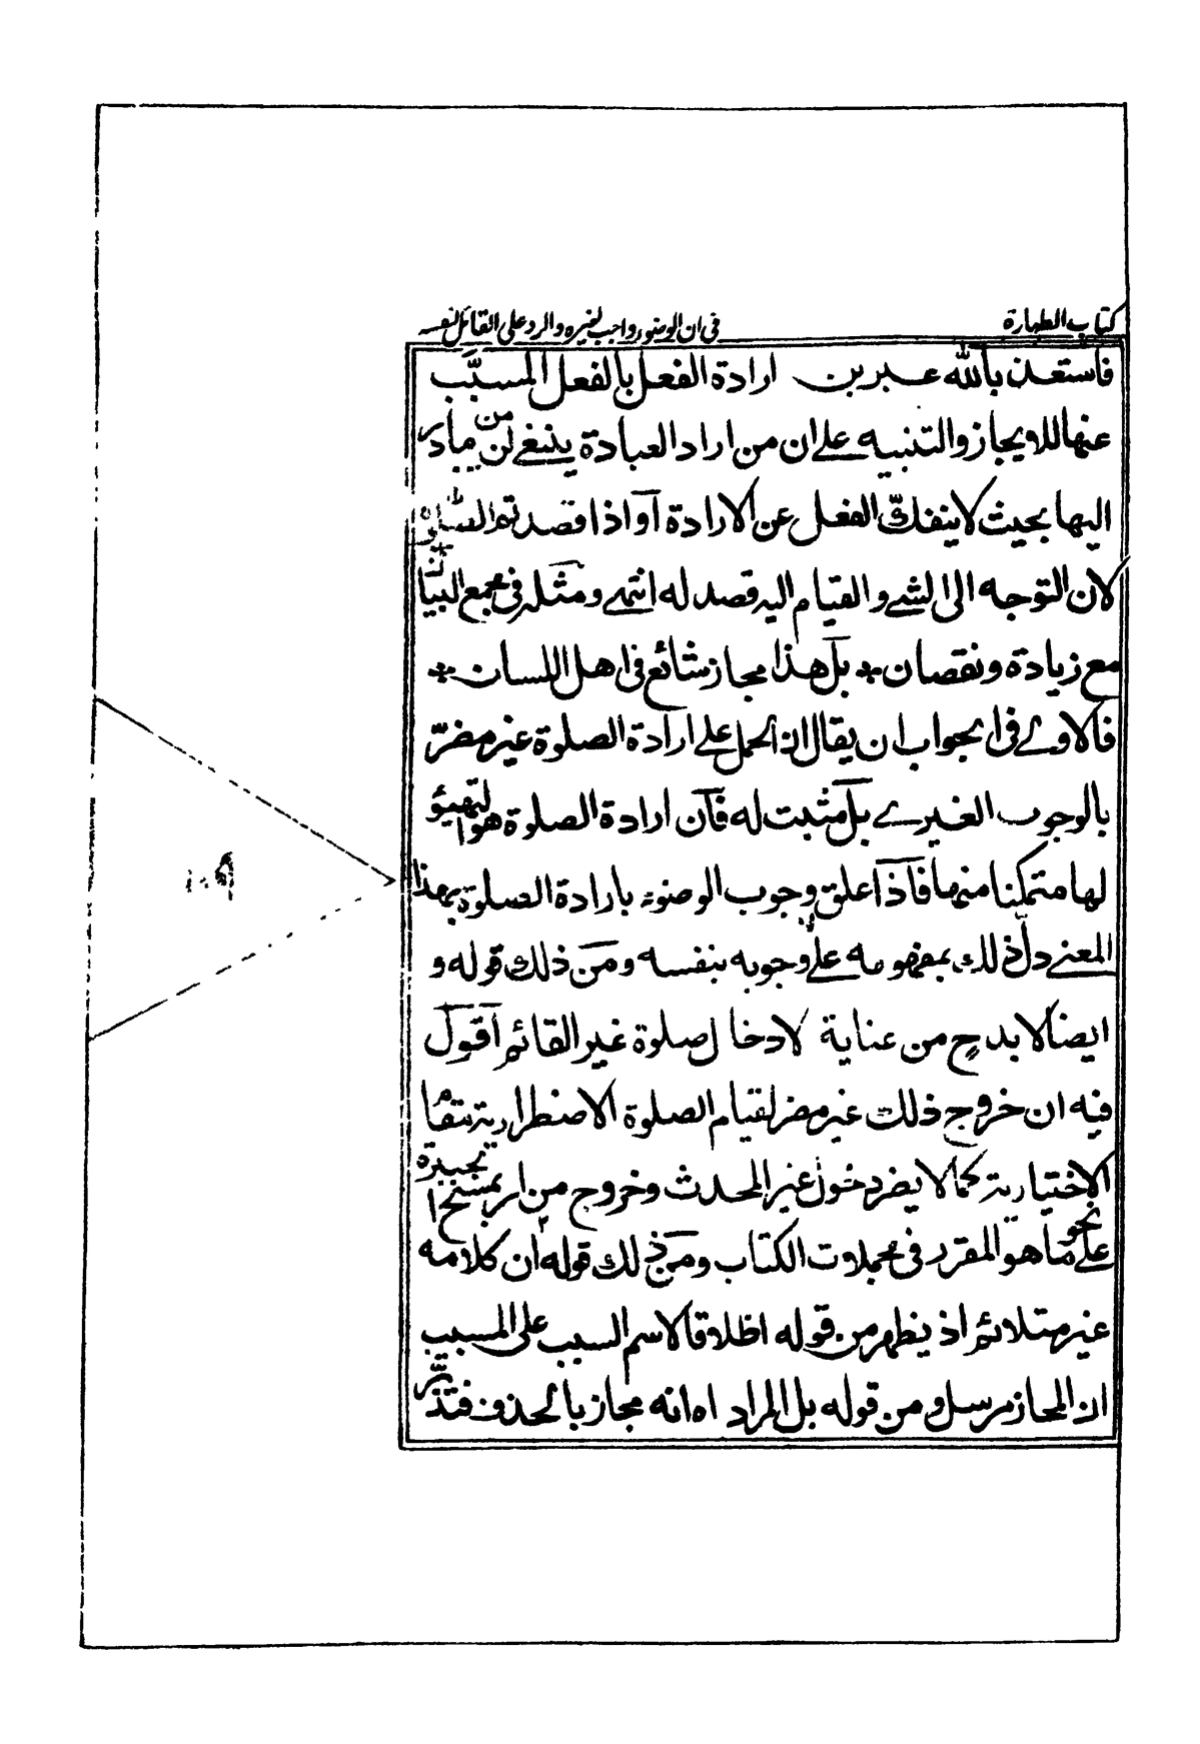 كتاب الطهارة
فى ان الوضوء واجب لغيره والرد على القائل لنفسه
فاستعذ بالله عبر بن ارادة الفعل بالفعل المسبَّب
عنها للايجاز والتنبيه على ان من اراد العبادة ينبغى ان يبادر
اليها بحيث لا ينفكّ الفعل عن الارادة آو اذا قصدتم الصلوة
لان التوجه الى الشى والقيام اليه قصد له انتهى ومثله فى مجمع البيان
مع زيادة ونقصان * بل هذا مجاز شائع فى اهل اللسان *
فالاولى فى الجواب ان يقال ان الحمل على ارادة الصلوة غير مضرّ
بالوجوب الغيرى بل مثبت له فان ارادة الصلوة هو التهيؤ
لها متمكنا منها فاذا علق وجوب الوضوء بارادة الصلوة بهذا
المعنى دلّ ذلك بمفهومه على وجوبه بنفسه ومن ذلك قوله و
ايضا لا بد ح من عناية لادخال صلوة غير القائم اقول
فيه ان خروج ذلك غير مضر لقيام الصلوة الاضطرارية مقام
الاختيارية كما لا يضر دخول غير المحدث وخروج من امر بمسح الجبيرة
على نحو ما هو المقرر فى مجملات الكتاب ومن ذلك قوله ان كلامه
غير متلائم اذ يظهر من قوله اطلاقا لاسم السبب على المسبب
ان المجاز مرسل ومن قوله بل المراد اه انه مجاز بالحذف فتدبّر